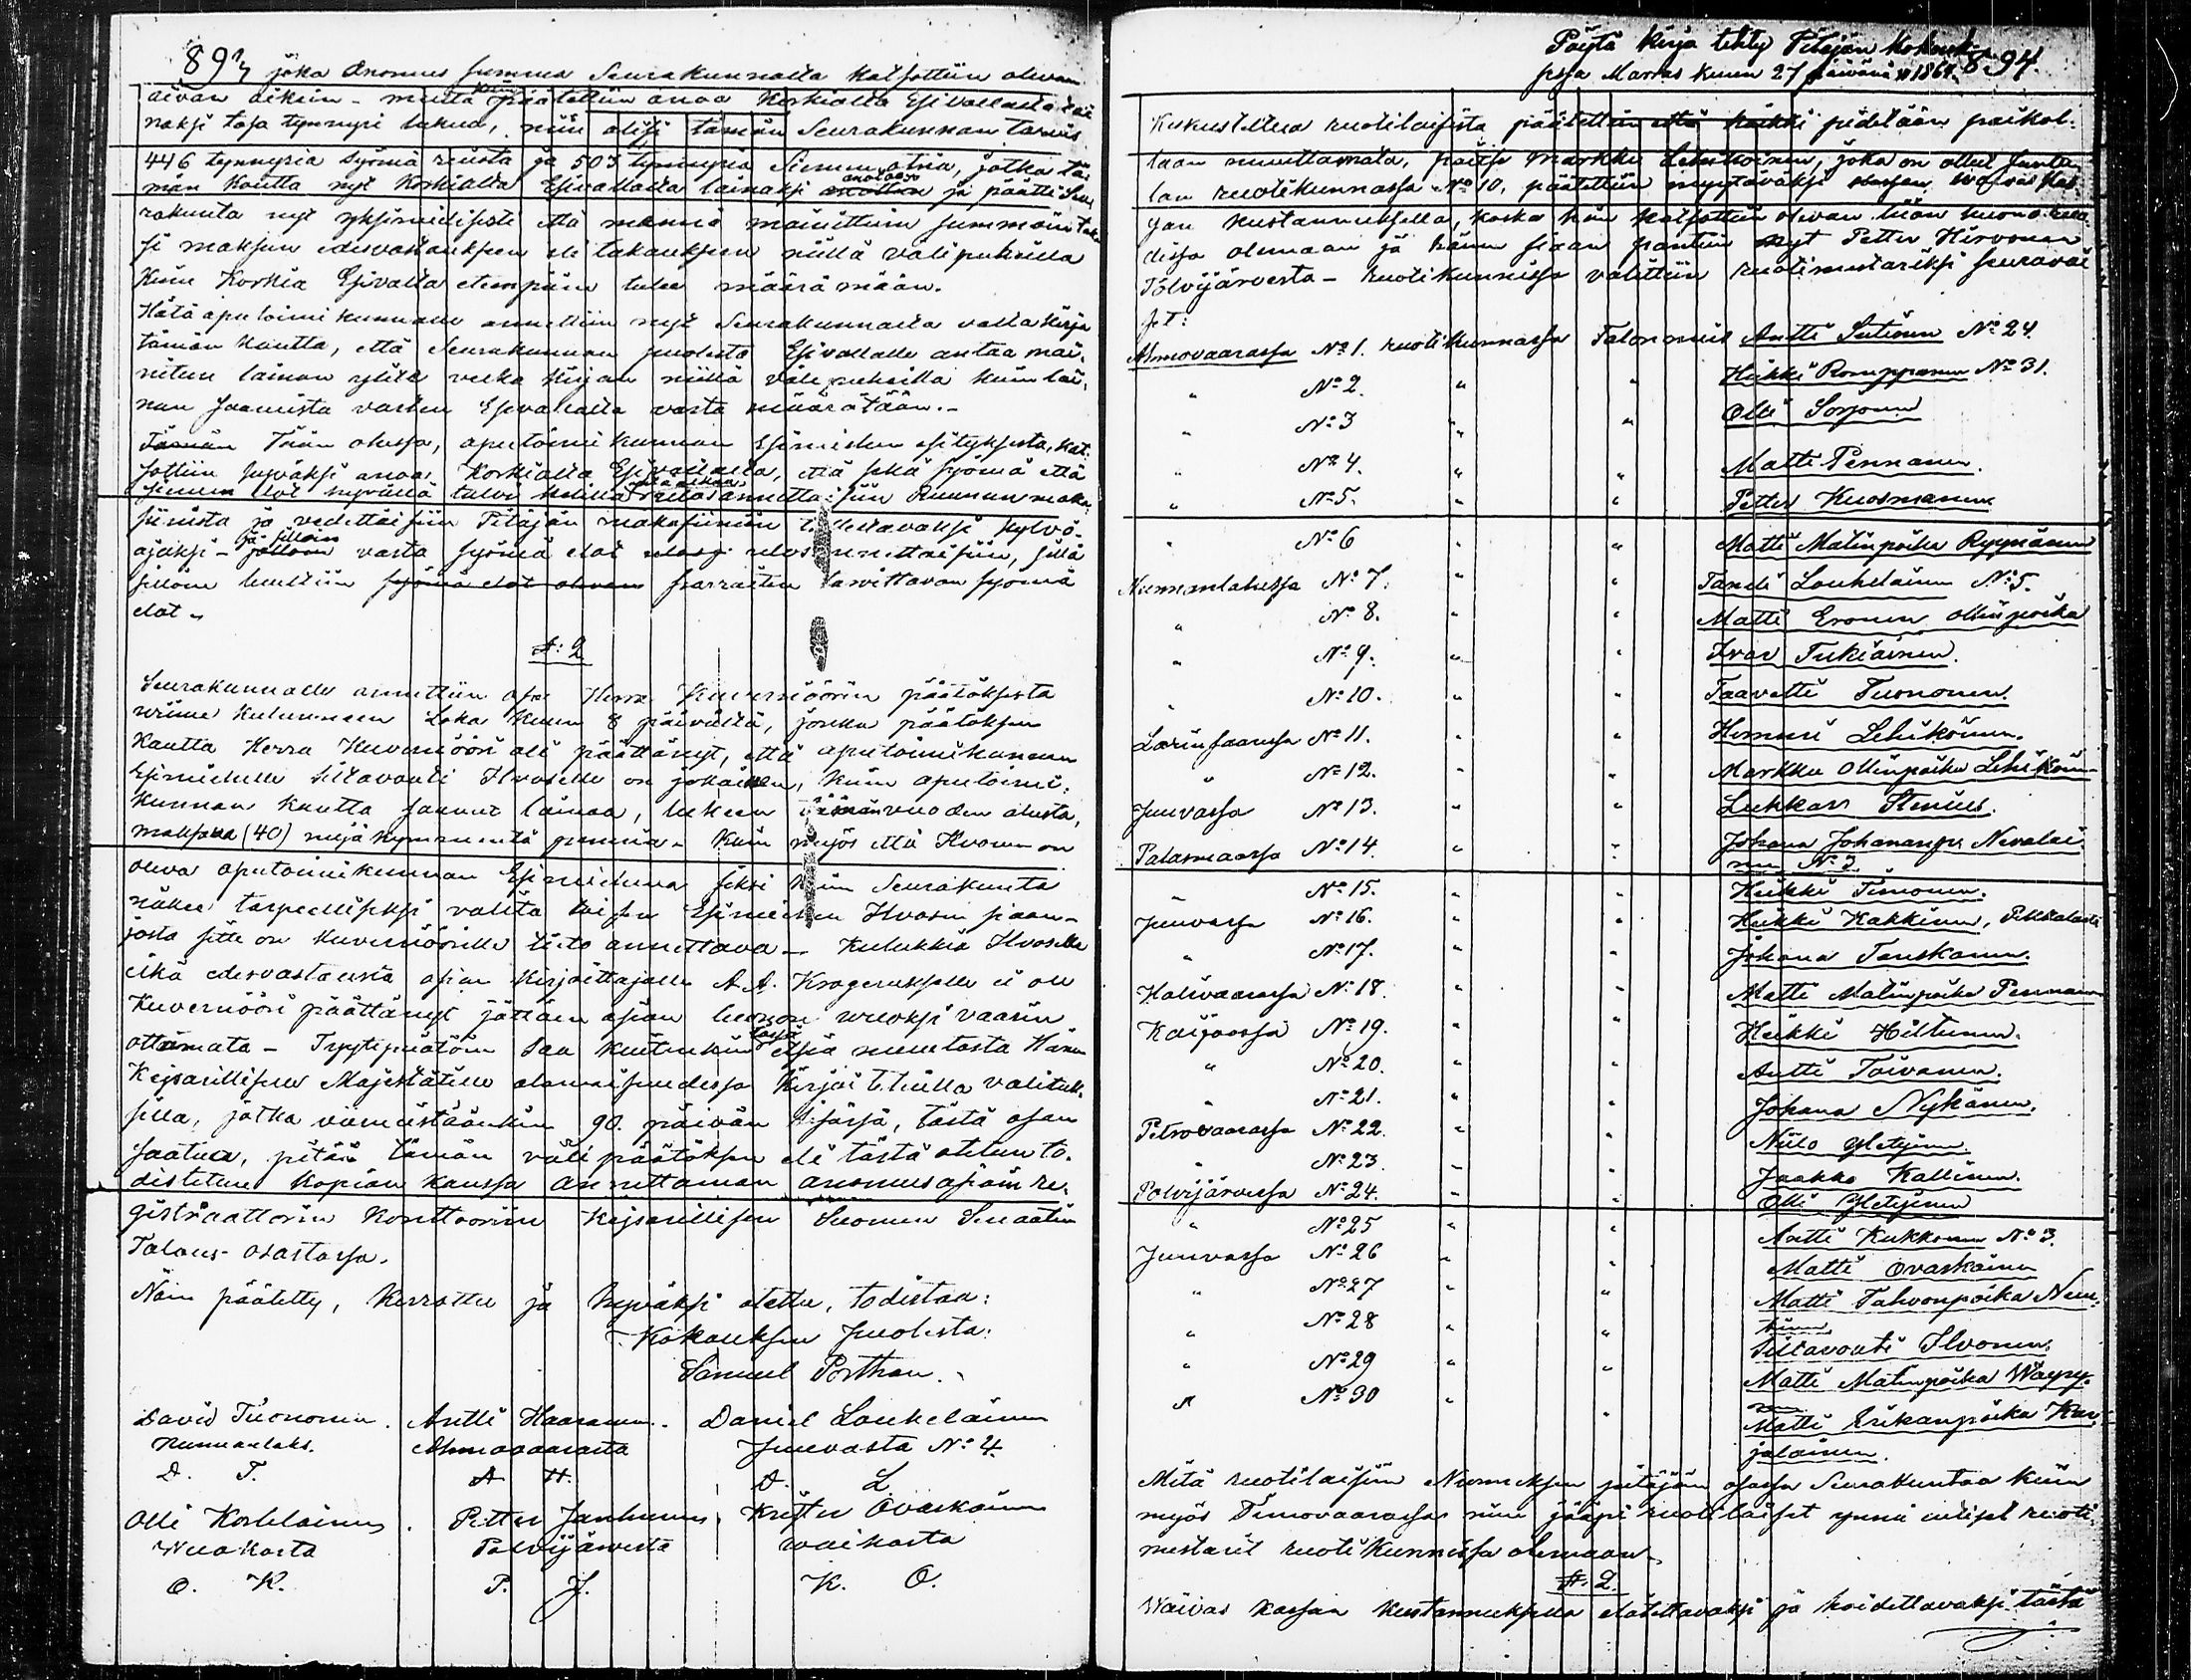 893
joka Anomus summa Seurakunnalta katsottiin olevan
aivan oikiin - mutta kuin päätettiin anoa Korkialta Esivallasta lai
naksi tasa tynnyri lukua, niin olisi tämän Seurakunnan tarvis
446 tynnyriä Syömä ruista ja 503 tynnyriä Siemen otria, jotka tä
män kautta nyt Korkialta Esivallalta lainaksi anotaan ja päätti Seu
rakunta nyt yksimielisesti että mennä mainittuun summaan
si maksun edesvastaukseen eli takaukseen niillä välipuheilla
kuin Korkia Esivalta eteenpäin tulee määräämään.
Hätäapu toimikunnalle annettiin nyt Seurakunnalta valta kirja
tämän kautta, että Seurakunnan puolesta Esivallalle antaa mai,
nitun lainan ylitse velka kirjan niillä väli puheilla kuin lai,
nan saamista varten Esivallalta vasta määrätään.-
Tämän Tään ohessa, aputoimi kunnan Esimiehen esityksestä, kat
sottiin hyväksi anoa Korkialta Esivallalta, että sekä syömä että
siemen elot hyvällä talvi kelillä ulos annettaisiin Ruunun maka
siinista ja vedettäisiin Pitäjän makasiiniin talletavaksi kylvö-
ajaksi - ja silloin jolloin vasta syömä elot ulos annettaisiin, sillä
silloin luultiin syömä elot olevan parraiten tarvittavan syömä
elot -
№: 2
Seurakunnalle annettiin osa Herra Kuvernöörin päätöksestä
viime kuluneen Loka kuun 8 päivältä, jonka päätöksen
kautta Herra Kuvernööri oli päättänyt, että aputoimikunnan
Esimiehelle Siltavouti Ilvoselle on jokainen, kuin aputoimi,
kunnan kautta saanut lainaa, lukein tämän vuoden alusta,
maksava (40) neljä kymmentä penniä - Kuin myös että Ilvonen on
oleva aputoimikunnan Esimiehenä siksi kuin Seurakunta
näkee tarpeelliseksi valita toisen Esimiehen Ilvosen siaan -
josta sitte on Kuvernöörille tieto annettava - Kulukkia Ilvoselle
eikä edesvastausta asian kirjoittajalle A. A. Krogerukselle ei ole
Kuvernööri päättänyt jättäen asian luonon vuoksi vaariin
ottamata - Tyytymätöin saa kuitenkin tässä etsiä muutosta Hänen
Keisarillisen Majestätille alamaisuudessa kirjoitetuilla valituk
silla, jotka viimeistäänkin 90. päivän sisässä, tästä osan
saatua, pitää tämän väli päätöksen eli tästä otetun to
distetun kopian kanssa annettaman anomusasiain re,
gistraattorin konttooriin Keisarillisen Suomen Senaatin
Talous-osastossa.
Näin päätetty, kerrottu ja hyväksi otettu, todistaa:
Kokouksen puolesta:
Samuel Porthan.
David Tuononen. Antti Haaranen. Daniel Loukelainen
Kunnanlaks. Ahmovaarasta Juuvasta № 4
D. T. A H. D. L
Olli Koslelainen. Petter Janhunen, Krister Ovaskainen
Vuokosta Polvijärvestä waikosta
O. K. P. J. K. O.
Pöytä kirja tehty Pitäjän Kokouk
sessa Marras kuun 27 päivänä 1864. 894.
Keskusteltua ruotilaisista päätettiin että kaikki pidetään paikal-
laan muuttamata, paitse Markku Lehikoinen, joka on ollut Junta
lan ruotikunnassa № 10, päätettiin myytäväksi waivas kas
san kustannuksella, koska hän katsottiin olevan liian
dessa olemaan ja hänen siaan pantiin nyt Petter Hirvonen
Polvijärvesta - Ruotikunnissa valittiin ruotimestariksi seuravai
set:
Ahmovaarassa № 1. ruotikunnassa Talonmies Antti Sutinen № 24.
" № 2. " " Heikki Romppanen № 31.
" № 3 " " Olli Sorjonen
" № 4. " " Matti Pennanen.
" № 5. " " Petter Kuosmanen
" № 6 " " Matti Matinpoika Ryynänen
Kunnanlahessa № 7. " " Taneli Loukelainen № 5.
" № 8. " " Matti Eronen Ollinpoika
" № 9. " " Ivar Tukiainen.
" № 10. " " Taavetti Tuononen.
Larinsaaressa № 11. " " Hemmi Lehikoinen.
" № 12. " " Markku Ollinpoika Lehikoin
Juuvassa № 13. " " Luhkars Stenius.
Polasmaassa № 14. " " Johana Johananps Nevalai
nen № 2.
" № 15. " " Heikki Timonen.
Juuvassa № 16. " " Heikki Kakkinen,
" № 17. " " Johana Tanskanen.
Halivaarassa № 18. " " Matti Matinpoika Pennanen
Kaijoossa № 19. " " Heikki Hiltunen.
" № 20. " " Antti Toivanen.
" № 21. " " Johana Nykänen.
Petrovaarassa № 22. " " Niilo Yletyinen.
" № 23. " " Jaakko Kallinen.
Polvijärvessä № 24. " " Olli Yletyinen
" № 25 " " Antti Kukkonen № 3.
Juuvassa № 26 " " Matti Ovaskainen
" № 27 " " Matti Tahvonpoika Nuu,
tinen
" № 28 " " Siltavouti Ilvonen.
" № 29 " " Matti Matinpoika Wäyry-
nen
" № 30 " " Matti Erikanpoika Kar
jalainen.
Mitä ruotilaisiin Nurmeksen pitäjän osassa Seurakuntaa kuin
myös Timovaarassa niin jääpi ruotilaiset ynnä entiset ruoti
mestarit ruotikunnissa olemaan -
№. 2.
Waivas kassan kustannuksella elätettäväksi ja hoidettavaksi tästä